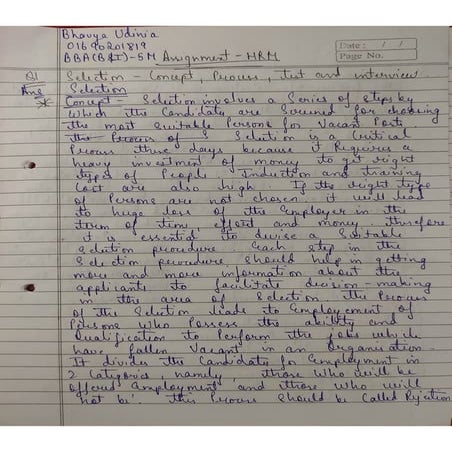 Bhavya Udinia
01690201819
BBA(B&I)-5M Assignment - HRM
Date: / /
Page No.
Q1 Selection - Concept, Process, Test and interview
Ans Selection
* Concept - Selection involves a Series of steps by
which the Candidate are Screened for choosing
the most Suitable Persons for Vacant Posts
The Process of Selection is a Critical
Process these days because it Requires a
heavy investment of money to get right
types of People. Induction and training
Cost are also high. If the right type
of Persons are not chosen it will lead
to huge loss of the Employer in the
term of time effort and money. therefore
it is essential to devise a Suitable
Selection procedure. Each step in the
Selection procedure should help in getting
more and more information about the
applicants to facilitate decision-making
in the area of Selection. The Process
of the Selection leads to Employement of
Persons who Possess the ability and
Qualification to Perform the jobs which
have fallen Vacant in an Organisation.
It divides the Candidate for Employment in
2 Categories namely, those who will be
offered employment and those who will
not be. this Process should be Called Rejection